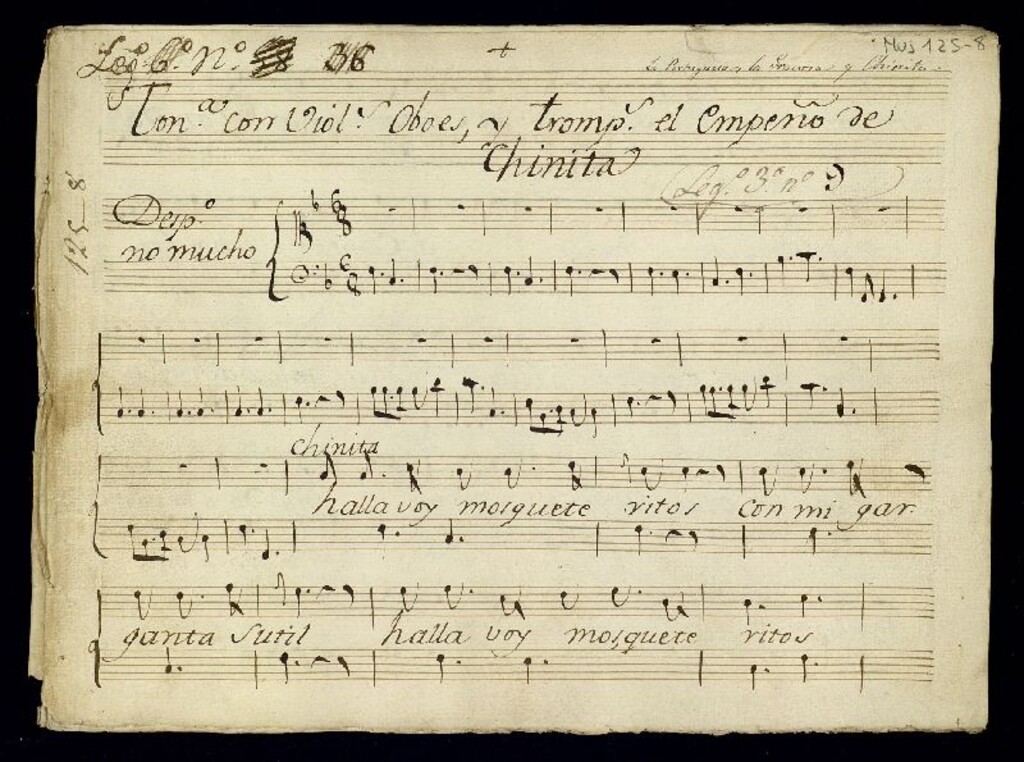 Leg.º 6.º N.º 36
+
MUS 125-8
La Portuguesa, y la Graciosa y Chinita
Ton.ª con Viol.s Oboes, y tromp.s el empeño de
Chinita
Leg.º 3.º nº 9
125-8
Desp.º
no mucho
6
8
6
8
chinita
halla voy mosquete ritos con mi gar
ganta sutil halla voy mosquete ritos